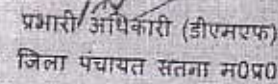 प्रभारी अधिकारी (डीएमएफ)
जिला पंचायत सतना म0प्र0